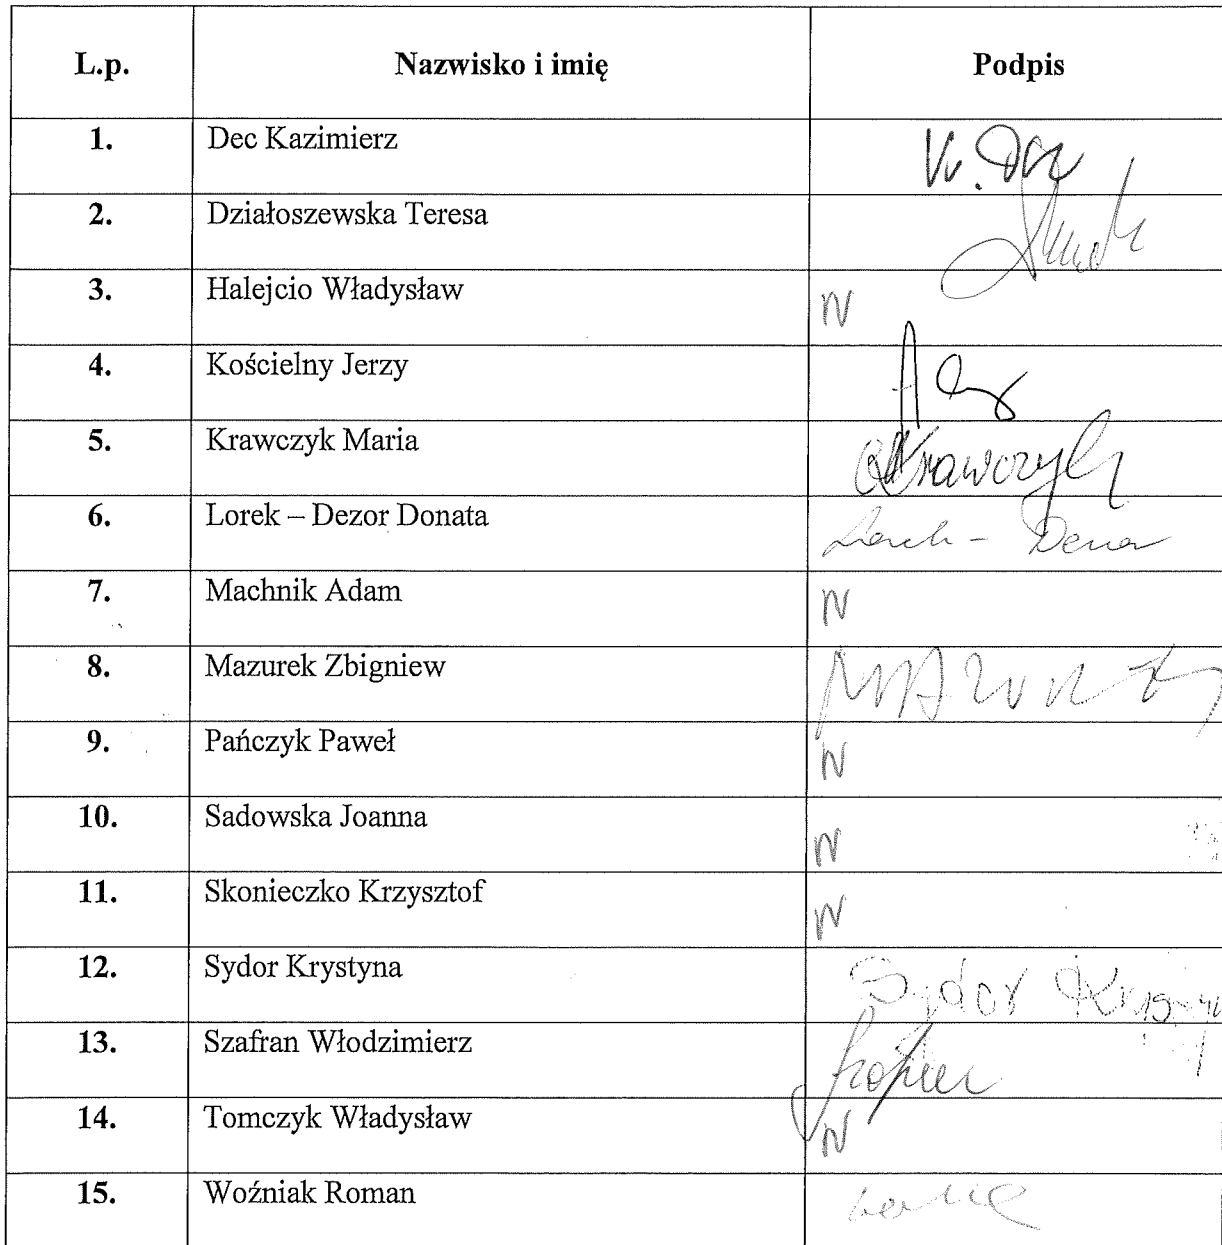 L.p. Nazwisko i imię Podpis
1. Dec Kazimierz K. Dec
2. Działoszewska Teresa
3. Halejcio Władysław N
4. Kościelny Jerzy
5. Krawczyk Maria Krawczyk
6. Lorek – Dezor Donata Lorek - Dezor
7. Machnik Adam N
8. Mazurek Zbigniew MAZUREK
9. Pańczyk Paweł N
10. Sadowska Joanna N
11. Skonieczko Krzysztof N
12. Sydor Krystyna Sydor Krystyna
13. Szafran Włodzimierz Szafran
14. Tomczyk Władysław N
15. Woźniak Roman